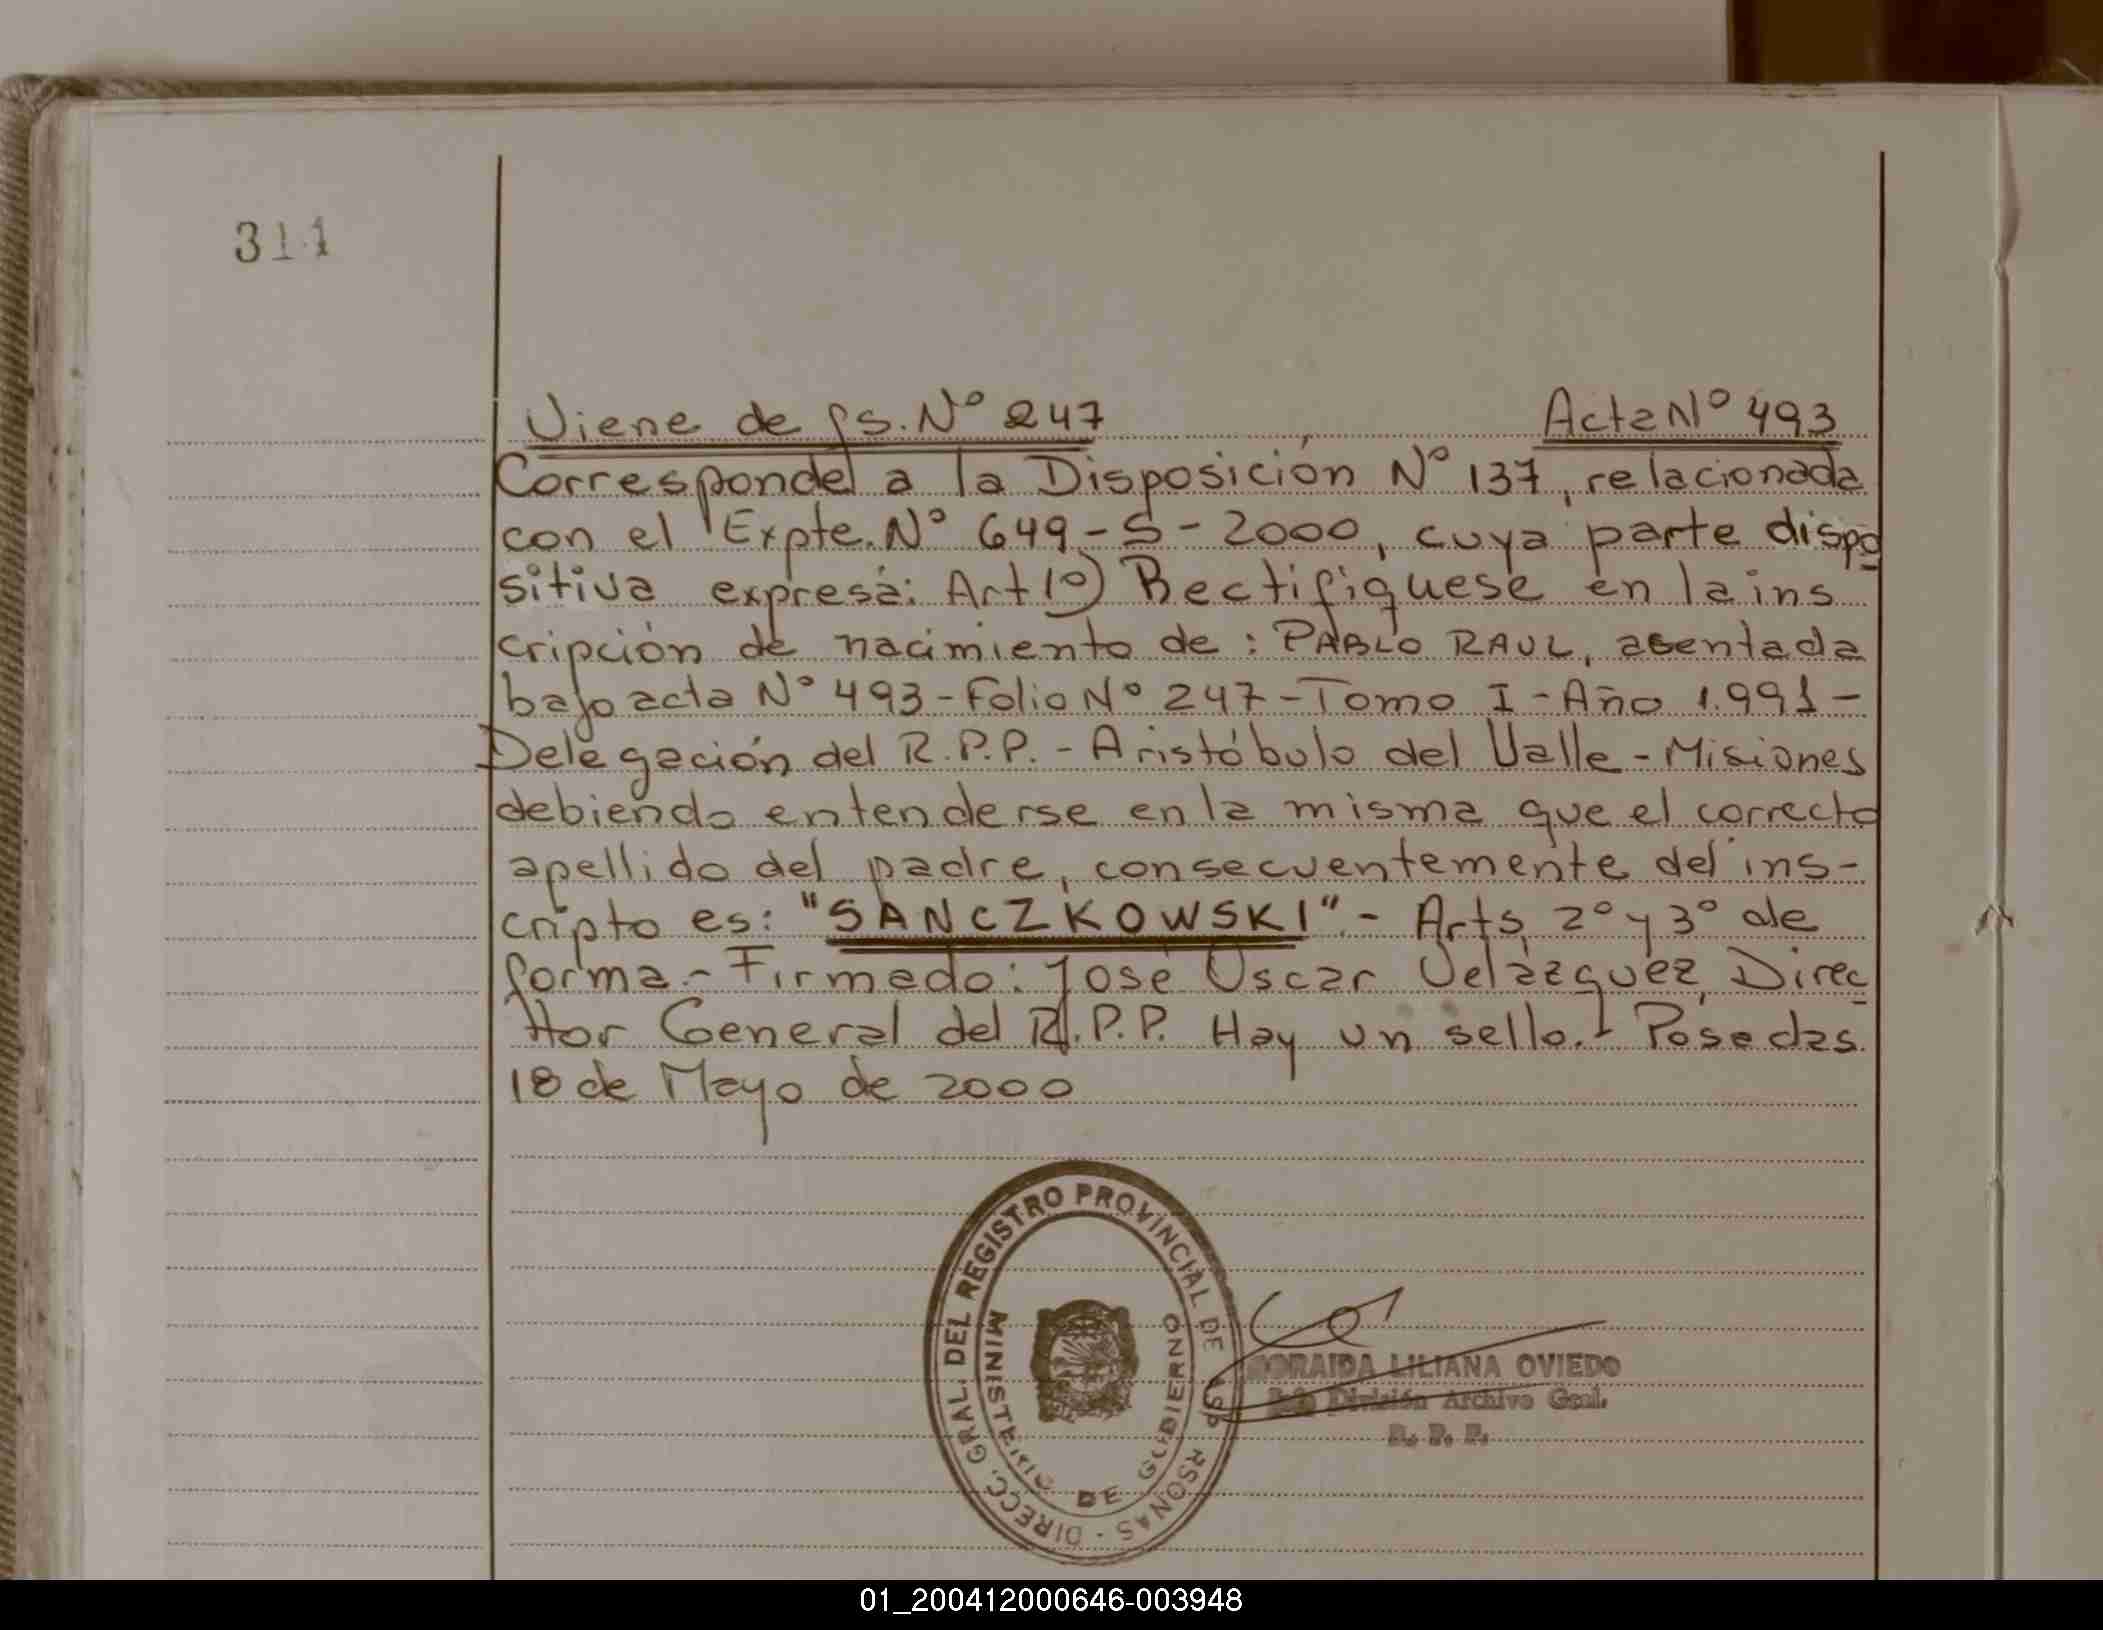 311
Viene de fs. Nº 247 Acta Nº 493
Corresponde a la Disposición Nº 137, relacionada
con el Expte. Nº 649-S-2000, cuya parte dispo
sitiva expresa: Art 1º) Rectifíquese en la ins
cripción de nacimiento de: PABLO RAUL, asentada
bajo acta Nº 493-Folio Nº 247-Tomo I-Año 1.991-
Delegación del R.P.P.-Aristóbulo del Valle-Misiones
debiendo entenderse en la misma que el correcto
apellido del padre, consecuentemente del ins-
cripto es: "SANCZKOWSKI".- Arts. 2º y 3º de
forma.- Firmado: José Oscar Velázquez, Direc
tor General del R.P.P. Hay un sello.- Posadas
18 de Mayo de 2000
DIRECC. GRAL. DEL REGISTRO PROVINCIAL DE PERSONAS
MINISTERIO DE GOBIERNO
SORAIDA LILIANA OVIEDO
División Archivo Gral.
R. P. P.
01_200412000646-003948